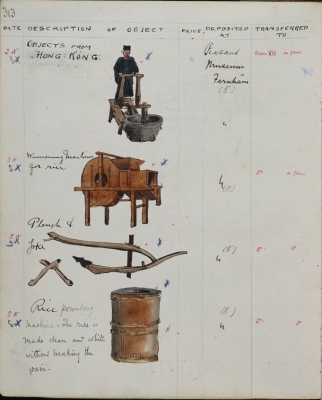 313
DATE DESCRIPTION OF OBJECT PRICE. DEPOSITED AT TRANSFERRED TO
OBJECTS FROM
HONG KONG.
Peasant
Museum
Farnham
(8)
Winnowing Machine
for rice
Plough &
Yoke
(8)
Rice pounding
(8)
machine. The rice is
made clean and white
without breaking the
grain.